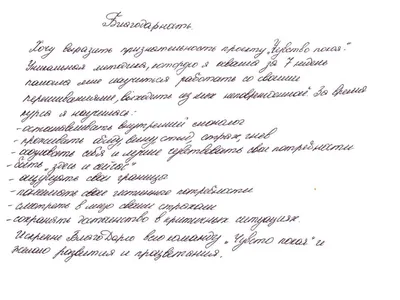 Благодарность.
Хочу выразить признательность проекту „Чувство покоя".
Уникальная методика, которую я освоила за 7 недель
помогла мне научиться работать со своими
переживаниями, выходить из них невредимой. За время
курса я научилась:
- останавливать внутренний монолог
- проживать обиду, вину, стыд, страх, гнев
- осознавать себя и лучше чувствовать свои потребности
- быть „здесь и сейчас"
- ощущать свои границы
- понимать свои истинные потребности
- смотреть в лицо своим страхам
- сохранять достоинство в критичных ситуациях.
Искренне Благодарю всю команду „Чувство покоя" и
желаю развития и процветания.